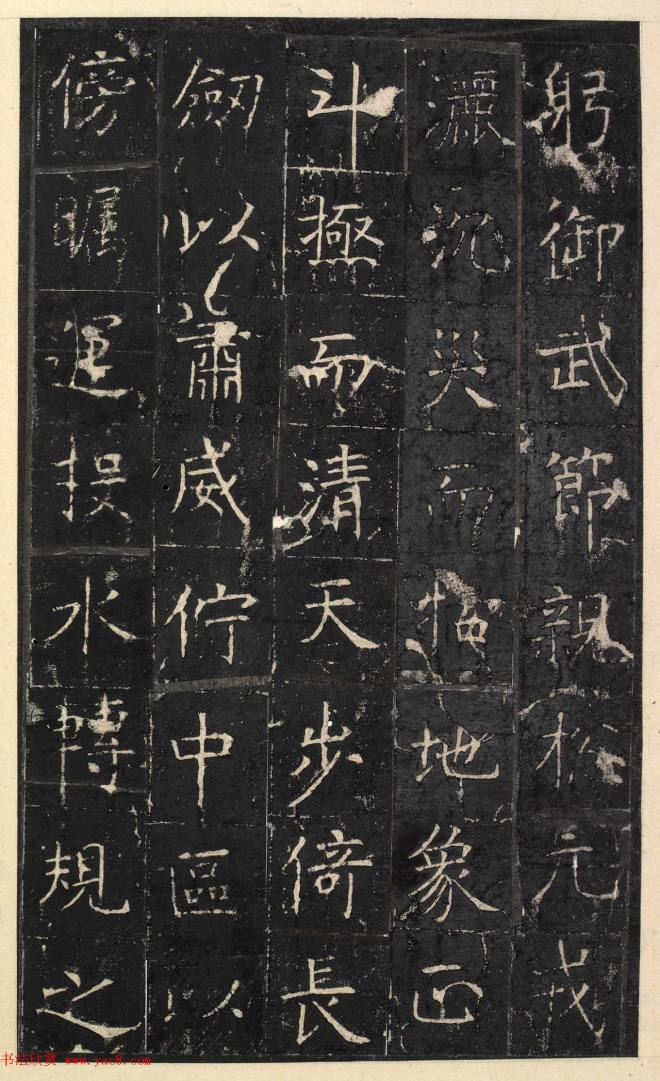 躬御武節親於元戎
灑沉災而埽地象正
斗極而清天步倚長
劒以肅威佇中區以
傍矚運投水轉規之
书法欣赏 www.yac8.com